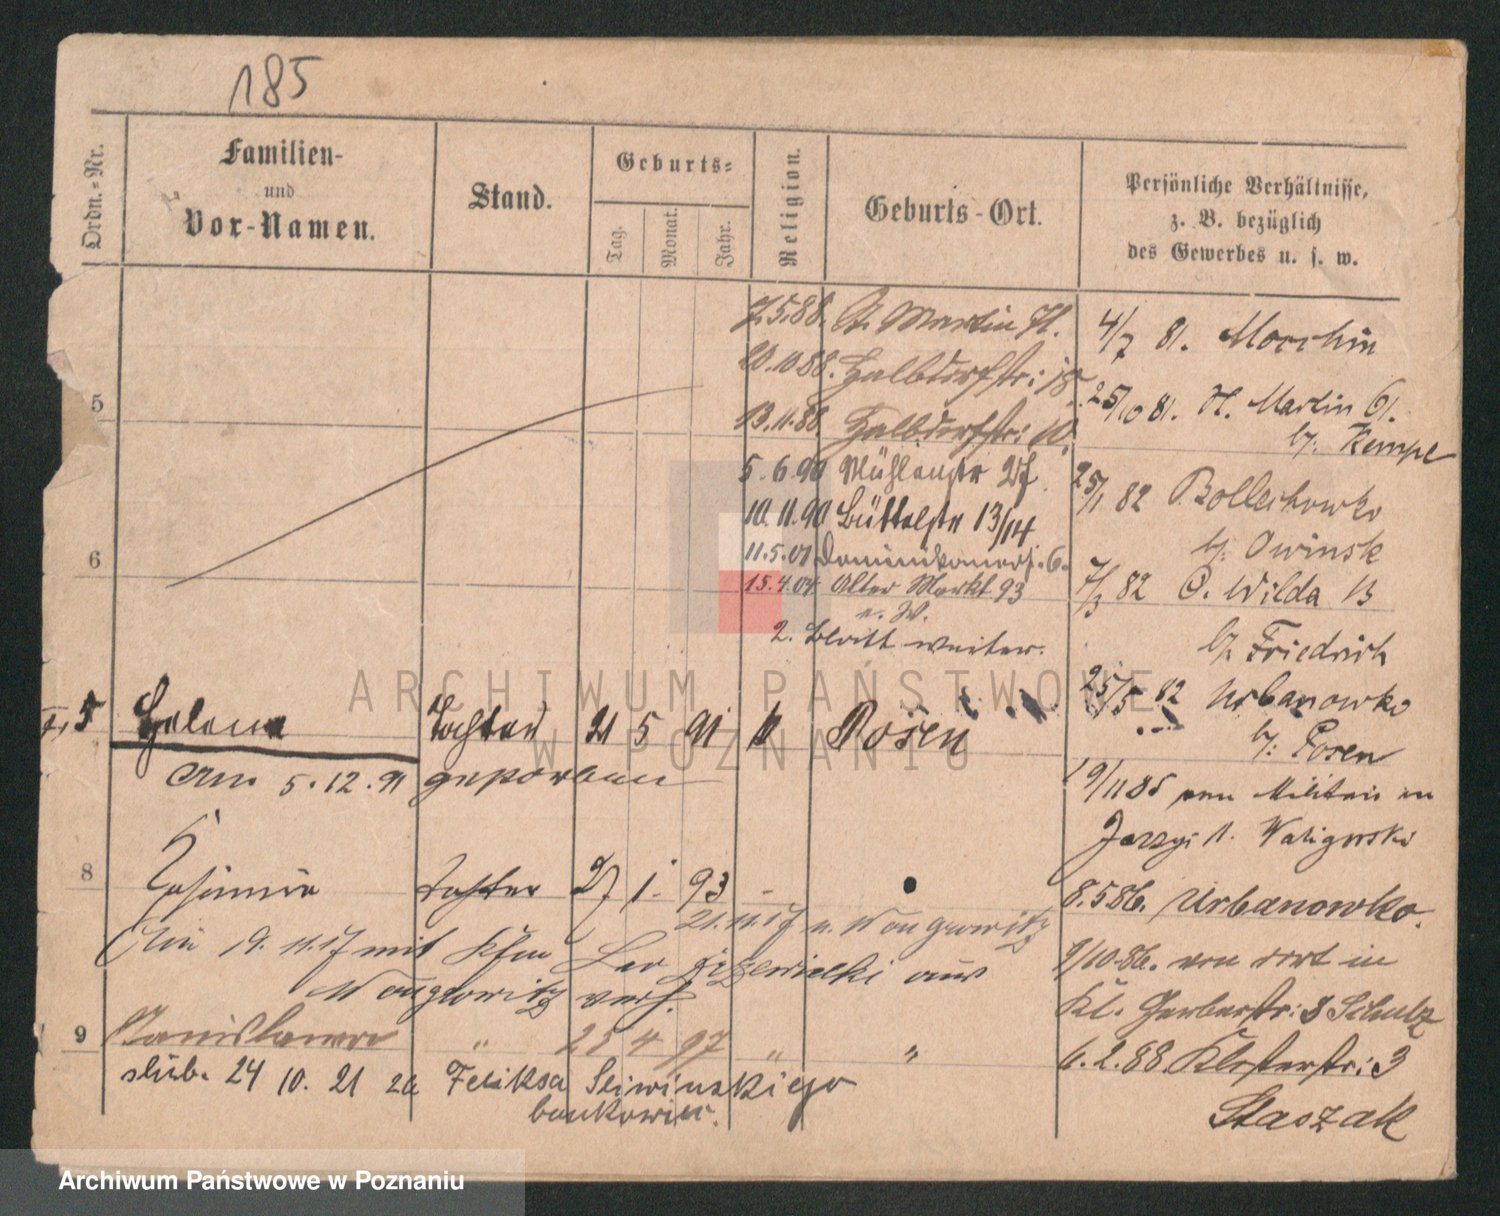 185
Ordn.-Nr.
Familien-
und
Vor-Namen.
Stand.
Geburts-
Tag.
Monat.
Jahr.
Religion.
Geburts-Ort.
Persönliche Verhältnisse,
z. B. bezüglich
des Gewerbes u. s. w.
7.5.88. St. Martin 71.
20.10.88. Halbdorfstr: 18.
13.11.88 Halbdorfstr: 10.
5.6.90 Mühlenstr 27
10.11.90 Büttelstr 13/14
11.5.01 Dominikanerstr. 6.
15.4.04 Alter Markt 93
2. Blatt weiter.
5
6
5 Helena Tochter 21 5 91 k Posen
Am 5.12.91 gestorben
8 Kasimira Tochter 27 1. 93 -
21.11.17 n. Wongrowitz
Am 19.11.17 mit Kfm Leo aus
Wongrowitz verh.
9 Stanislawa " 25 4 97 " "
slub. 24 10. 21 za Feliksa Sliwinskiego
bankowiec.
4/7 81. Morchin
25/10 81. St. Martin 61.
b/: Kempe
25/1 82 Bollechowko
b/: Owinsk
7/3 82 O. Wilda 13
b/: Friedrich
25/5 82 Urbanowko
b/: Posen
19/11 85 vom Militair in
Jerzyi 1. Waligorski
8.5.86. Urbanowko.
9/10.86. von dort in
Kl. Gerberstr: 8 Schulz
6.2.88 Klosterstr: 3
Staszak
ARCHIWUM PAŃSTWOWE
W POZNANIU
Archiwum Państwowe w Poznaniu